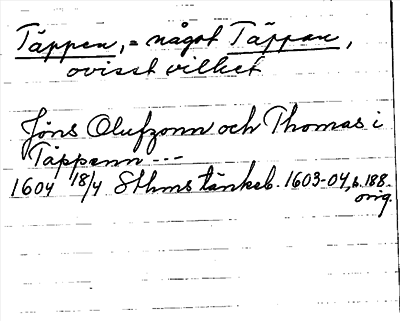 Täppen, = något Täppan,
ovisst vilket
Jöns Olufzonn och Thomas i
Täppenn ---
1604 18/4 Sthms tänkeb. 1603-04, s. 188.
orig.